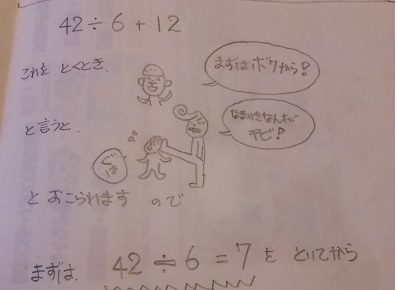 42÷6+12
これを とくとき、
まずはボクから!
と言うと、
なまいきなんだヨ
チビ!
ぐは
と おこられます ので
まずは 42÷6=7 を といてから